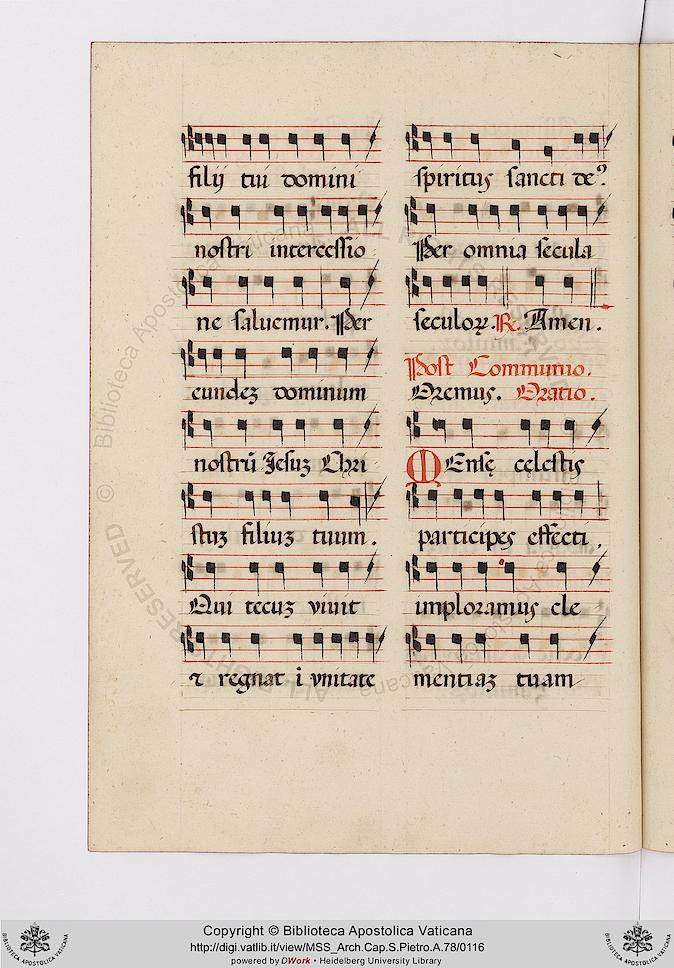 filij tui domini
nostri intercessio
ne saluemur. Per
eundez dominum
nostrū Jesuz Chri
stuz filiuz tuum.
Qui tecuz viuit
⁊ regnat ī vnitate
spiritus sancti de⁹.
Per omnia secula
seculoꝝ. R. Amen.
Post Communio.
Oremus. Oratio.
MEnsę cęlestis
participes effecti,
imploramus cle
mentiaz tuam
Copyright © Biblioteca Apostolica Vaticana
http://digi.vatlib.it/view/MSS_Arch.Cap.S.Pietro.A.78/0116
powered by DWork • Heidelberg University Library
© Biblioteca Apostolica Vaticana ALL RIGHTS RESERVED
BIBLIOTECA APOSTOLICA VATICANA
BIBLIOTECA APOSTOLICA VATICANA